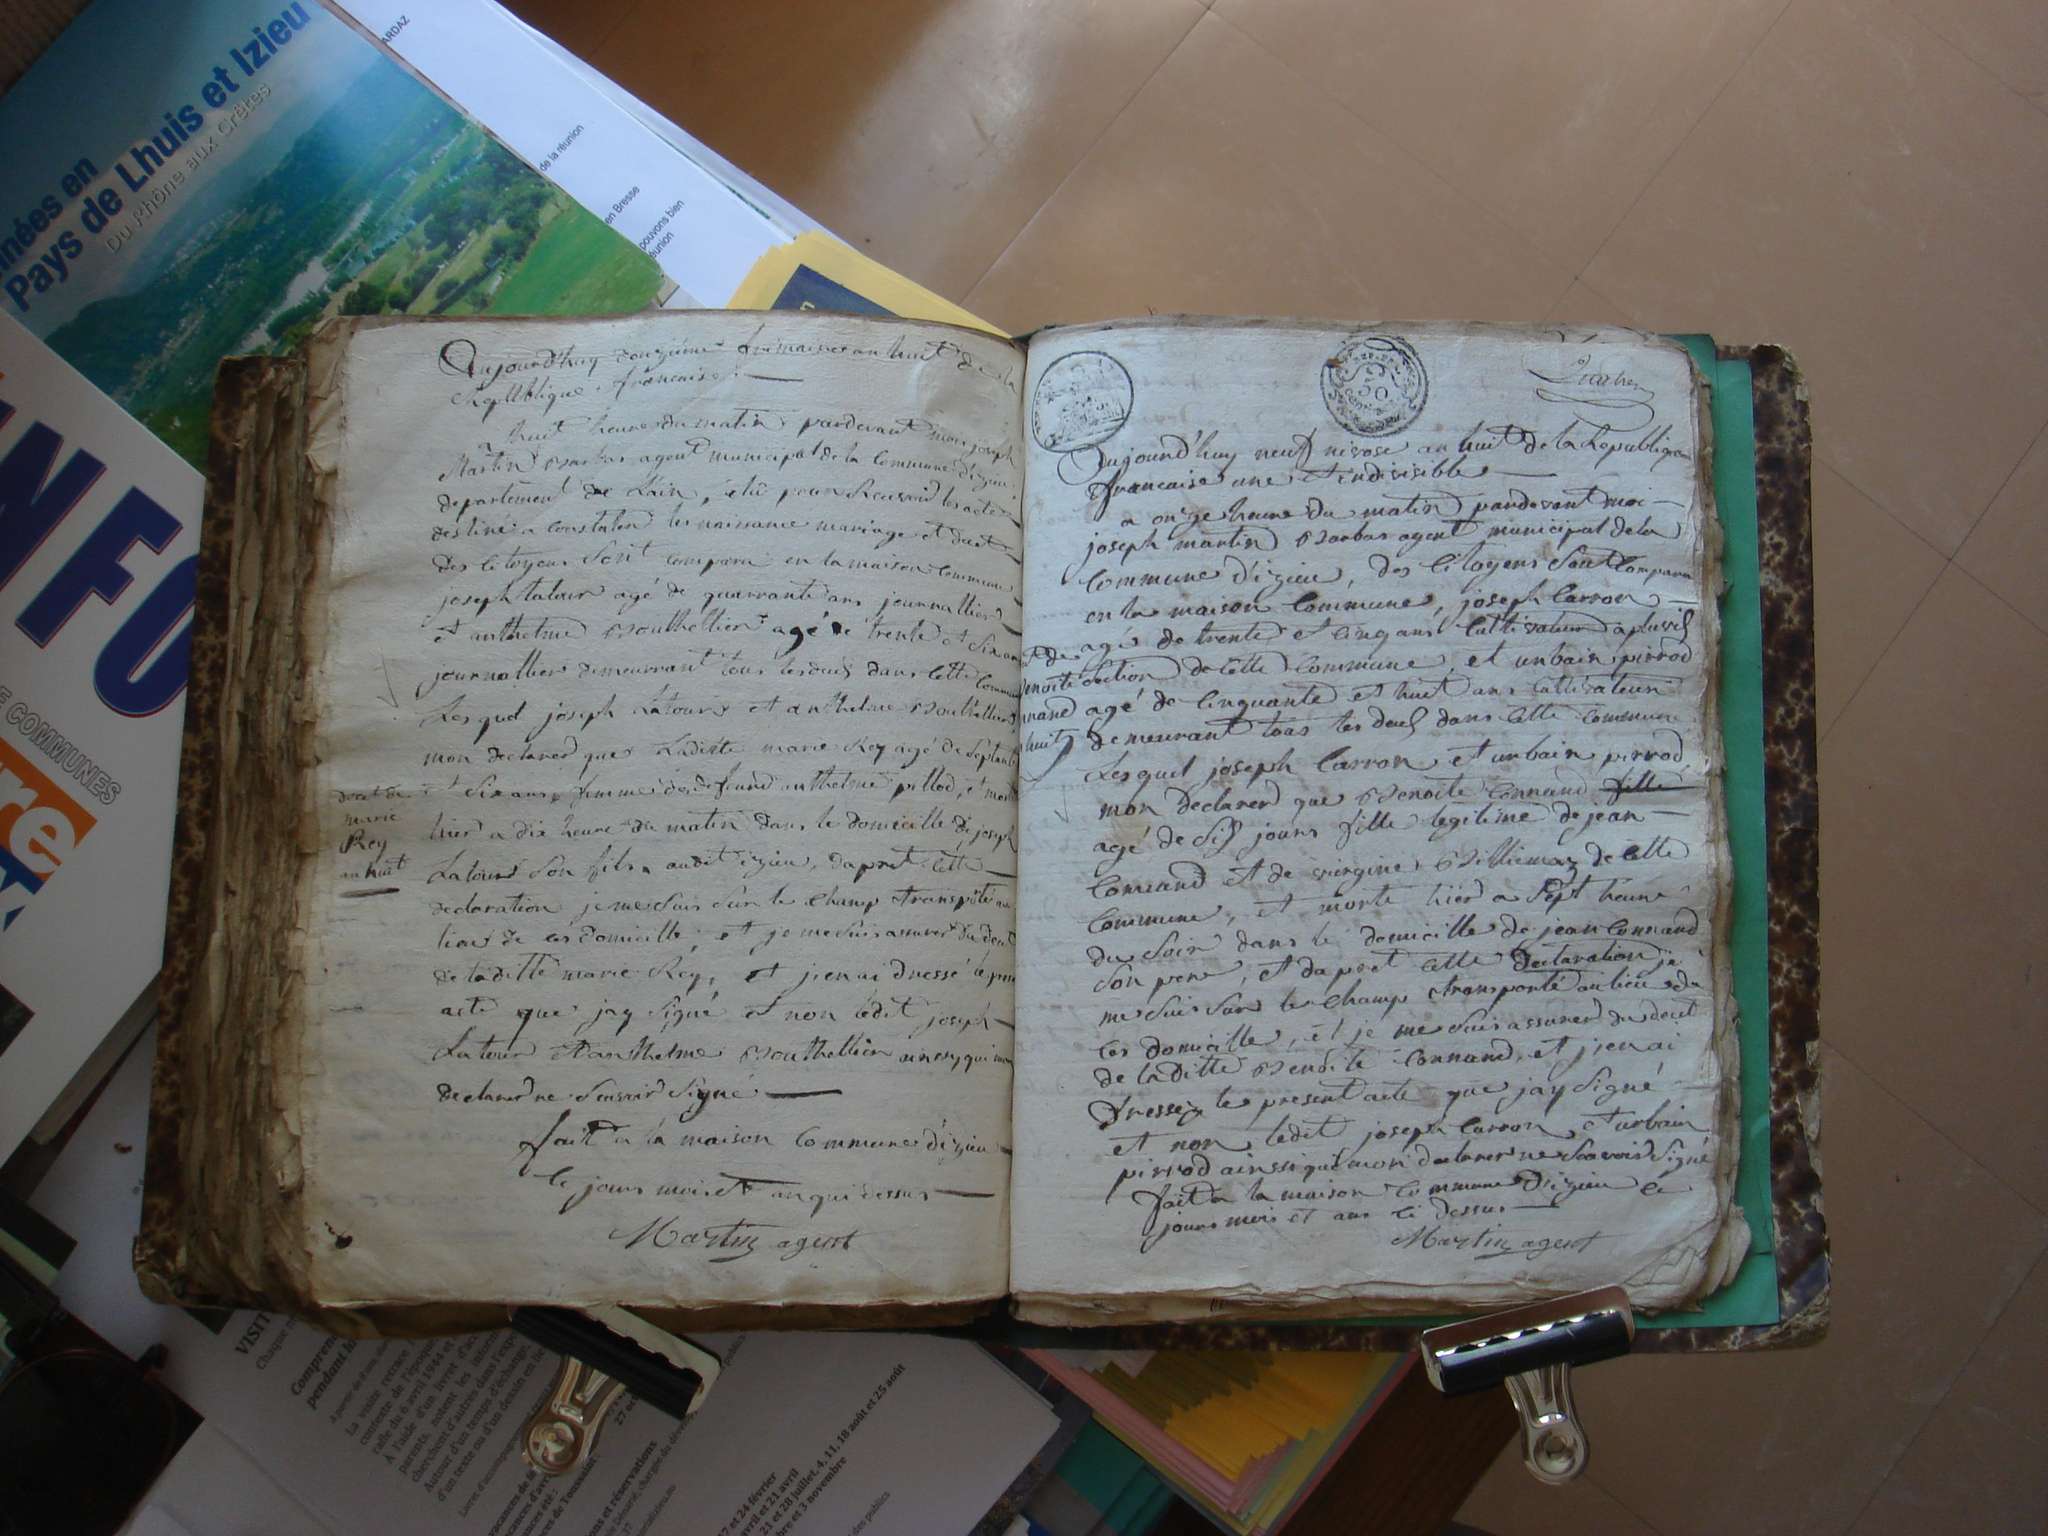 nnées en
Pays de Lhuis et Izieu
Du Rhône aux Crêtes
ARDAZ
de la réunion
en Bresse
pouvons bien
réunion
INFO
E COMMUNES
Aujourd'huy douzieme frimaire an huit de la
Republique francaise
a huit heure du matin pardevant moi joseph
Martin Barbas agent municipal de la Commune d'izieu
departement de Lain, élû pour Recevoir les acte
destiné a constater les naissance mariage et
des Citoyens Sont comparu en la maison Commune
joseph latour agé de quarrante ans journallier
et anthelme Bouthellier agé de trente et Six ans
journallier demeurrant tous les deux dans Cette Commune
Lesquel joseph Latour et anthelme Bouthellier
mon declarer que Laditte marie Rey agé de Septante
et Six ans, femme de defeund anthelme pillod, et morte
hier a dix heure du matin dans le domicille de joseph
Latour Son fils, audit izieu, dapret Cette
declaration je me Suis Sur le Champ transpôté au
lieu de ces domicille, et je me Suis assurer du deut
de laditte marie Rey, et j'en ai dressé le present
acte que jay Signé et non ledit joseph
Latour et anthelme Bouthellier ainsy qui mon
declarer ne Scavoir Signé
fait a la maison Commune d'izieu
le jours mois et an qui dessus
Martin agent
marie
Rey
an huit
Aujourd'huy neuf nivose an huit de la Republique
francaise une et indivisible
a onze heure du matin pardevant moi
joseph martin Barbas agent municipal de la
Commune d'izieu, des Citoyens Sont Comparu
en la maison Commune, joseph Carron
agé de trente et cinq ans Cultivateur
Section de Cette Commune, et urbain pirrod
agé de Cinquante et huit ans Cultivateur
demeurant tous les deux dans Cette Commune
Lesquel joseph Carron et urbain pirrod
mon declarer que Benoite Connand fille
agé de Six jours fille legitime de jean
Connand et de virgine Billiemaz de Cette
Commune, et morte hier a Sept heure
du Soir dans le domicille de jean Connand
Son pere, et dapret Cette declaration je
me Suis Sur le Champ transporté au lieu de
ces domicille, et je me Suis assurer du deut
de laditte Benoite Connand, et j'en ai
dressez le present acte que jay Signé
et non ledit joseph Carron et urbain
pirrod ainsi qui mon declarer ne Scavoir Signé
fait a la maison Commune d'izieu le
jours mois et ans ci dessus
Martin agent
VISIT
27 et 24 février
avril et 21 avril
21 et 28 juillet, 4, 11, 18 août et 25 août
bre et 3 novembre